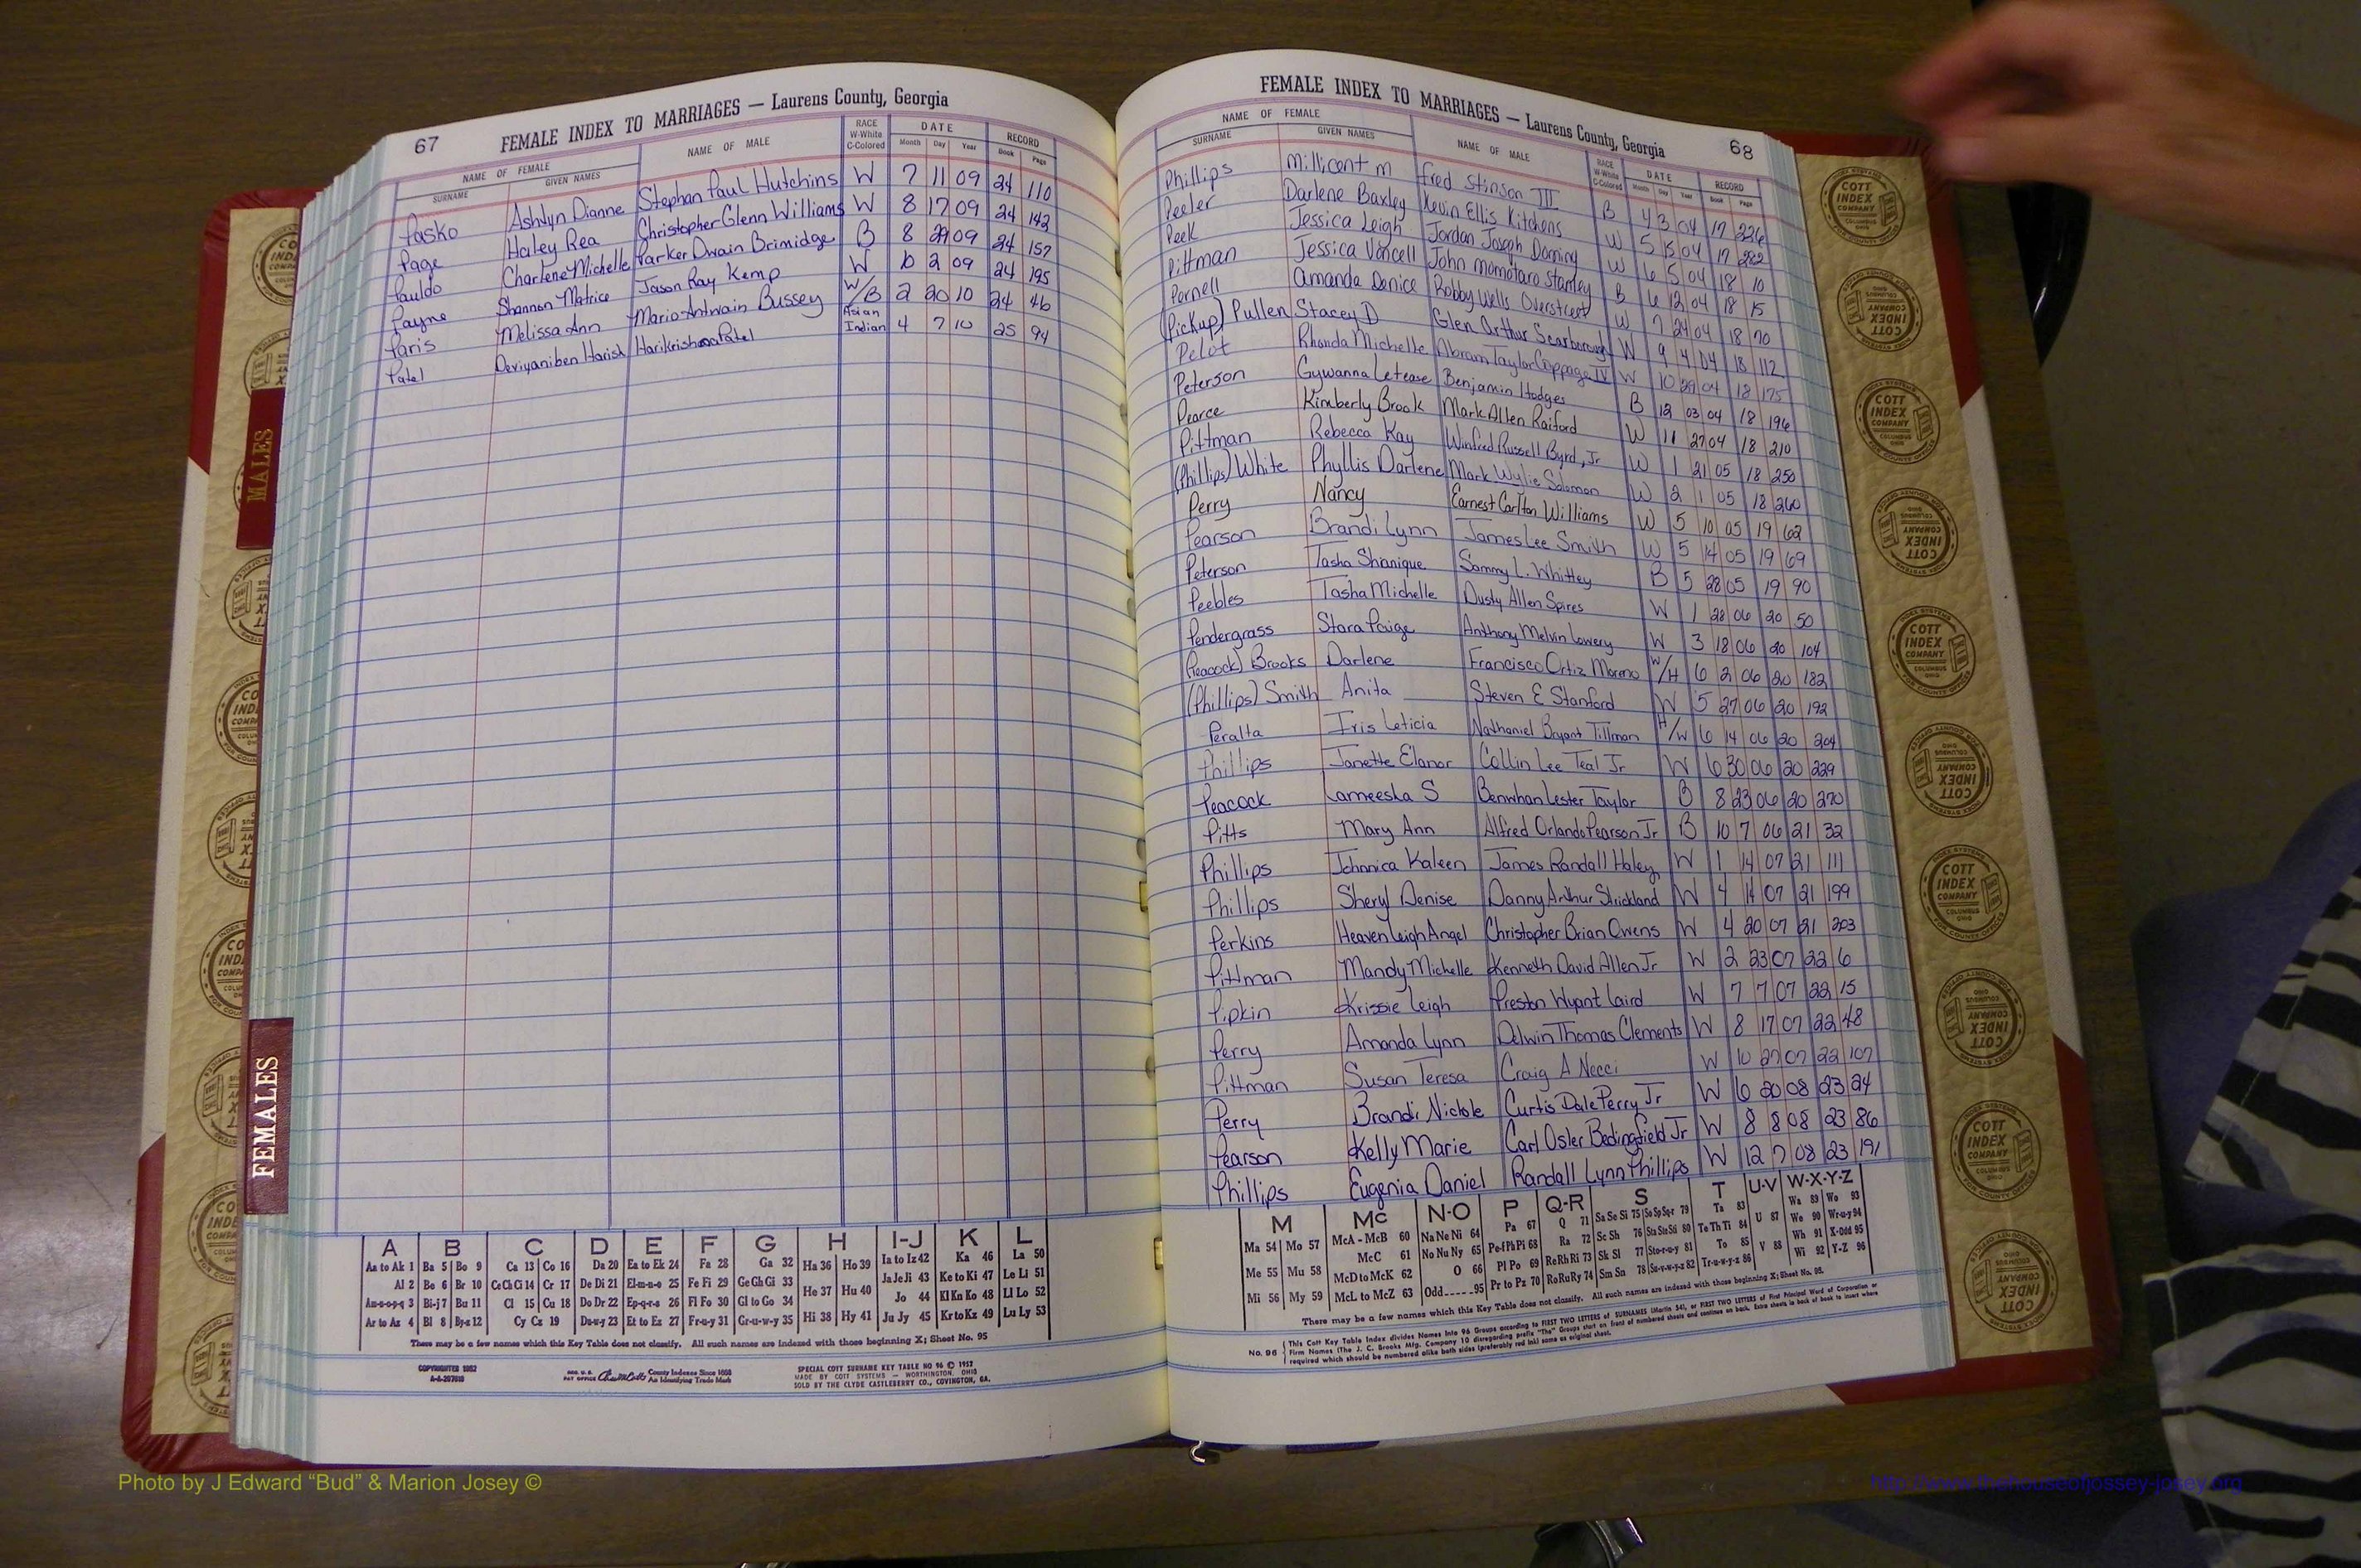 67
FEMALE INDEX TO MARRIAGES — Laurens County, Georgia
NAME OF FEMALE
SURNAME GIVEN NAMES
NAME OF MALE
RACE W-White C-Colored
DATE Month Day Year
RECORD Book Page
Pasko Ashlyn Dianne Stephan Paul Hutchins W 7 11 09 24 110
Page Haley Rea Christopher Glenn Williams W 8 17 09 24 142
Pauldo Charlene Michelle Parker Dwain Brimidge B 8 29 09 24 157
Payne Shannon Matrice Jason Ray Kemp W 10 2 09 24 195
Paris Melissa Ann Mario Antwain Bussey W/B 2 20 10 24 46
Patel Deviyaniben Harish Harikrishna Patel Asian Indian 4 7 10 25 94
FEMALE INDEX TO MARRIAGES — Laurens County, Georgia
68
NAME OF FEMALE
SURNAME GIVEN NAMES
NAME OF MALE
RACE W-White C-Colored
DATE Month Day Year
RECORD Book Page
Phillips Millicent M Fred Stinson III B 4 3 04 17 236
Peeler Darlene Baxley Kevin Ellis Kitchens W 5 15 04 17 282
Peek Jessica Leigh Jordan Joseph Dominy W 6 5 04 18 10
Pittman Jessica Vancell John Momotaro Stanley B 6 12 04 18 15
Pernell Amanda Denice Bobby Wells Overstreet W 7 24 04 18 70
(Pickup) Pullen Stacey D Glen Arthur Scarborough W 9 4 04 18 112
Pelot Rhonda Michelle Abram Taylor Coppage IV W 10 29 04 18 175
Peterson Gywanna Letease Benjamin Hodges B 12 03 04 18 196
Pearce Kimberly Brook Mark Allen Raiford W 11 27 04 18 210
Pittman Rebecca Kay Winfred Russell Byrd, Jr W 1 21 05 18 250
(Phillips) White Phyllis Darlene Mark Wylie Solomon W 2 1 05 18 260
Perry Nancy Earnest Carlton Williams W 5 10 05 19 62
Pearson Brandi Lynn James Lee Smith W 5 14 05 19 69
Peterson Tasha Shanique Sammy L. Whitley B 5 28 05 19 90
Peebles Tasha Michelle Dusty Allen Spires W 1 28 06 20 50
Pendergrass Stara Paige Anthony Melvin Lowery W 3 18 06 20 104
(Peacock) Brooks Darlene Francisco Ortiz Moreno W/H 6 2 06 20 182
(Phillips) Smith Anita Steven E Stanford W 5 27 06 20 192
Peralta Iris Leticia Nathaniel Bryant Tillman H/W 6 14 06 20 204
Phillips Janette Elanor Collin Lee Teal Jr W 6 30 06 20 229
Peacock Lameesha S Benwhan Lester Taylor B 8 23 06 20 270
Pitts Mary Ann Alfred Orlando Pearson Jr B 10 7 06 21 32
Phillips Johnnica Kaleen James Randall Haley W 1 14 07 21 111
Phillips Sheryl Denise Danny Arthur Strickland W 4 14 07 21 199
Perkins Heaven Leigh Angel Christopher Brian Owens W 4 20 07 21 203
Pittman Mandy Michelle Kenneth David Allen Jr W 2 23 07 22 6
Pipkin Krissie Leigh Preston Wyant Laird W 7 7 07 22 15
Perry Amanda Lynn Delwin Thomas Clements W 8 17 07 22 48
Pittman Susan Teresa Craig A Necci W 10 27 07 22 107
Perry Brandi Nickole Curtis Dale Perry Jr W 6 20 08 23 24
Pearson Kelly Marie Carl Osler Bedingfield Jr W 8 8 08 23 86
Phillips Eugenia Daniel Randall Lynn Phillips W 12 7 08 23 191
A B C D E F G H I-J K L
Aa to Ak 1 Ba 5 Bo 9 Ca 13 Co 16 Da 20 Ea to Ek 24 Fa 28 Ga 32 Ha 36 Ho 39 Ia to Iz 42 Ka 46 La 50
Al 2 Be 6 Br 10 Ce Ch Ci 14 Cr 17 De Di 21 El-m-n-o 25 Fe Fi 29 Ge Gh Gi 33 He 37 Hu 40 Ja Je Ji 43 Ke to Ki 47 Le Li 51
Am-n-o-p-q 3 Bi-j 7 Bu 11 Cl 15 Cu 18 Do Dr 22 Ep-q-r-s 26 Fl Fo 30 Gl to Go 34 Jo 44 Kl Kn Ko 48 Ll Lo 52
Ar to Az 4 Bl 8 By-z 12 Cy Cz 19 Du-w-y 23 Et to Ez 27 Fr-u-y 31 Gr-u-w-y 35 Hi 38 Hy 41 Ju Jy 45 Kr to Kz 49 Lu Ly 53
There may be a few names which this Key Table does not classify. All such names are Indexed with those beginning X; Sheet No. 95
COPYRIGHTED 1952
A-A-207610
REG. U.S. PAT OFFICE County Indexes Since 1888 An Identifying Trade Mark
SPECIAL COTT SURNAME KEY TABLE NO 96 © 1952
MADE BY COTT SYSTEMS — WORTHINGTON, OHIO
SOLD BY THE CLYDE CASTLEBERRY CO., COVINGTON, GA.
M Mc N-O P Q-R S T U-V W-X-Y-Z
Ma 54 Mo 57 McA - McB 60 Na Ne Ni 64 Pa 67 Q 71 Sa Se Si 75 So Sp Sq-r 79 Ta 83 U 87 Wa 89 Wo 93
Me 55 Mu 58 McC 61 No Nu Ny 65 Pe-f Ph Pi 68 Ra 72 Sc Sh 76 Sta Ste Sti 80 Te Th Ti 84 We 90 Wr-u-y 94
McD to McK 62 O 66 Pl Po 69 Re Rh Ri 73 Sk Sl 77 Sto-r-u-y 81 To 85 V 88 Wh 91 X-Odd 95
Mi 56 My 59 McL to McZ 63 Odd.....95 Pr to Pz 70 Ro Ru Ry 74 Sm Sn 78 Su-v-w-y-z 82 Tr-u-w-y-z 86 Wi 92 Y-Z 96
There may be a few names which this Key Table does not classify. All such names are indexed with those beginning X; Sheet No. 95.
No. 96 This Cott Key Table Index divides Names Into 96 Groups according to FIRST TWO LETTERS of SURNAMES (Martin 54), or FIRST TWO LETTERS of First Principal Word of Corporation or
Firm Names (The J. C. Brooks Mfg. Company 10 disregarding prefix "The" Groups start on front of numbered sheets and continue on back. Extra sheets in back of book to insert where
required which should be numbered alike both sides (preferably red ink) same as original sheet.
MALES
FEMALES
COTT INDEX COMPANY COLUMBUS OHIO
INDEX SYSTEMS FOR COUNTY OFFICES
Photo by J Edward “Bud” & Marion Josey ©
http://www.thehouseofjossey-josey.org